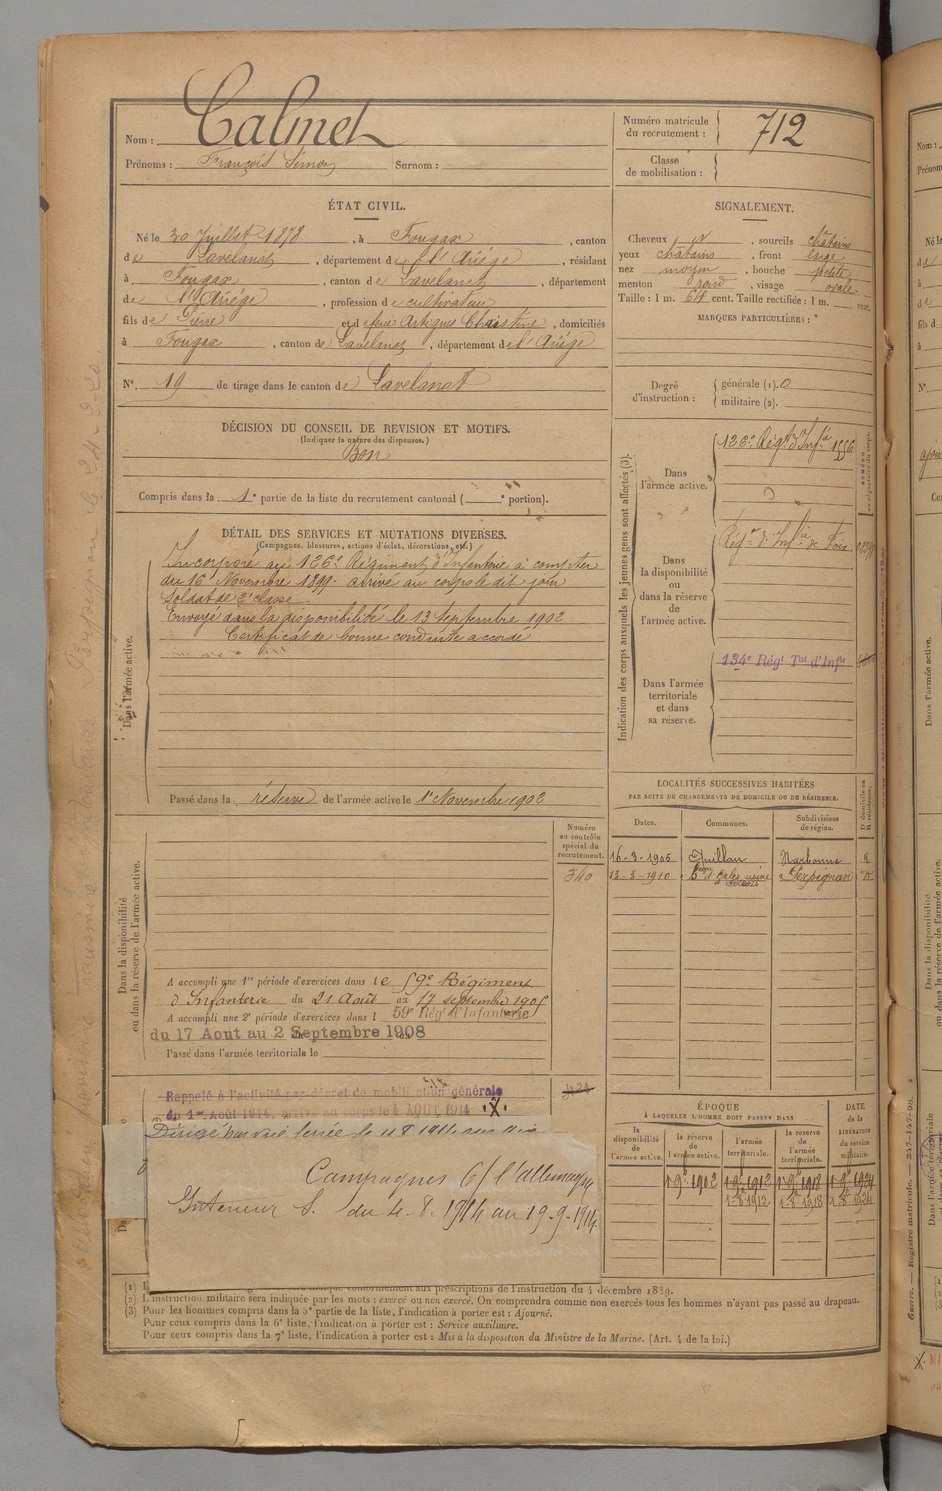 Nom : Calmet
Prénoms : François Simon Surnom :
Numéro matricule du recrutement : 712
Classe de mobilisation :
ÉTAT CIVIL.
Né le 30 Juillet 1878, à Fougax, canton
de Lavelanet, département de l'Ariège, résidant
à Fougax, canton de Lavelanet, département
de l'Ariège, profession de cultivateur
fils de Pierre et de feue Artigues Christine, domiciliés
à Fougax, canton de Lavelanet, département de l'Ariège
N° 19 de tirage dans le canton de Lavelanet
SIGNALEMENT.
Cheveux id, sourcils châtains
yeux châtains, front large
nez moyen, bouche petite
menton rond, visage ovale
Taille : 1 m. 64 cent. Taille rectifiée : 1 m. cent.
MARQUES PARTICULIÈRES :
Degré d'instruction : générale (1). 0
militaire (2).
DÉCISION DU CONSEIL DE REVISION ET MOTIFS.
(Indiquer la nature des dispenses.)
Bon
Compris dans la 1e partie de la liste du recrutement cantonal ( e portion).
DÉTAIL DES SERVICES ET MUTATIONS DIVERSES.
(Campagnes, blessures, actions d'éclat, décorations, etc.)
Dans l'armée active.
Incorporé au 126e Régiment d'Infanterie à compter
du 16 Novembre 1899. arrivé au corps le dit jour
Soldat de 2e classe.
Envoyé dans la disponibilité le 13 Septembre 1902
Certificat de bonne conduite accordé
Passé dans la réserve de l'armée active le 1er Novembre 1902
Indication des corps auxquels les jeunes gens sont affectés (3).
Dans l'armée active.
126e Régt d'Infie
Dans la disponibilité ou dans la réserve de l'armée active.
Régt d'Infie de Foix
Dans l'armée territoriale et dans sa réserve.
134e Régt Tal d'Infie
LOCALITÉS SUCCESSIVES HABITÉES
PAR SUITE DE CHANGEMENTS DE DOMICILE OU DE RÉSIDENCE.
Dates. Communes. Subdivisions de région. D domicile ou R résidence.
16-3-1906 Quillan Narbonne R
13-3-1910 usine Perpignan
Dans la disponibilité ou dans la réserve de l'armée active.
Numéro au contrôle spécial du recrutement.
340
A accompli une 1re période d'exercices dans le 59e Régiment
d'Infanterie du 21 Août au 17 septembre 1905
A accompli une 2e période d'exercices dans l 59e Régt d'Infanterie
du 17 Aout au 2 Septembre 1908
Passé dans l'armée territoriale le
Rappelé à l'activité par décret de mobilisation générale
du 1er Août 1914, arrivé au corps le 4 AOUT 1914 .X.
Campagnes C/ l'allemagne
Intérieur S. du 4-8-1914 au 19-9-1914
ÉPOQUE
À LAQUELLE L'HOMME DOIT PASSER DANS
la disponibilité de l'armée active. la réserve de l'armée active. l'armée territoriale. la réserve de l'armée territoriale.
DATE de la LIBÉRATION du service militaire.
1 9bre 1902 1 9bre 1912 1 9bre 1918 1 9bre 1924
1-8-1912 1-8-1918 1-8-1924
conformément aux prescriptions de l'instruction du 4 décembre 1889.
(2) L'instruction militaire sera indiquée par les mots : exercé ou non exercé. On comprendra comme non exercés tous les hommes n'ayant pas passé au drapeau.
(3) Pour les hommes compris dans la 5e partie de la liste, l'indication à porter est : Ajourné.
Pour ceux compris dans la 6e liste, l'indication à porter est : Service auxiliaire.
Pour ceux compris dans la 7e liste, l'indication à porter est : Mis à la disposition du Ministre de la Marine. (Art. 4 de la loi.)